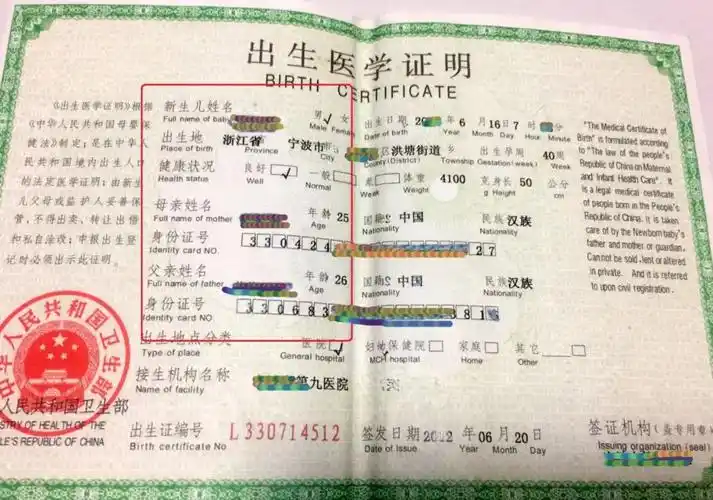 出生医学证明
BIRTH CERTIFICATE
《出生医学证明》根据
《中华人民共和国母婴保
健法》制定,是在中华人
民共和国境内出生人口
的法定医学证明;由新生
儿父母或监护人妥善保
管,不得出卖、转让出借
和私自涂改;申报出生登
记时必须出示此证明。
新生儿姓名 男√ 女 出生日期 20 年 6 月 16 日 7 时 分
Full name of baby Male Female Date of birth Year Month Day Hour Minute
出生地 浙江省 宁波市 区洪塘街道 乡 出生孕周 40 周
Place of birth Province City County(District) Township Gestation(week) Week
健康状况 良好 √ 一般 体重 4100 克 身长 50 公分
Health status Well Normal Weak Weight g Height cm
母亲姓名 年龄 25 国籍 中国 民族 汉族
Full name of mother Age Nationality Nationality
身份证号 330424 27
Identity card NO.
父亲姓名 年龄 26 国籍 中国 民族 汉族
Full name of father Age Nationality Nationality
身份证号 330683 381
Identity card NO.
出生地点分类 医院 √ 妇幼保健院 家庭 其它
Type of place General hospital MCH hospital Home Other
接生机构名称 第九医院
Name of facility
出生证编号 L330714512 签发日期 2012 年 06 月 20 日
Birth certificate No Date of Issue Year Month Day
签证机构(盖专用章)
Issuing organization (seal)
"The Medical Certificate of
Birth" is formulated according
to "The law of the people's
Republic of China on Maternal
and Infant Health Care". It
is a legal medical certificate
of people born in the People's
Republic of China. It is taken
care of by the Newborn baby's
father and mother or guardian.
Can not be sold, lent or altered
in private. And it is referred
to upon civil registration.
中华人民共和国卫生部
人民共和国卫生部
STRY OF HEALTH OF THE
LE'S REPUBLIC OF CHINA